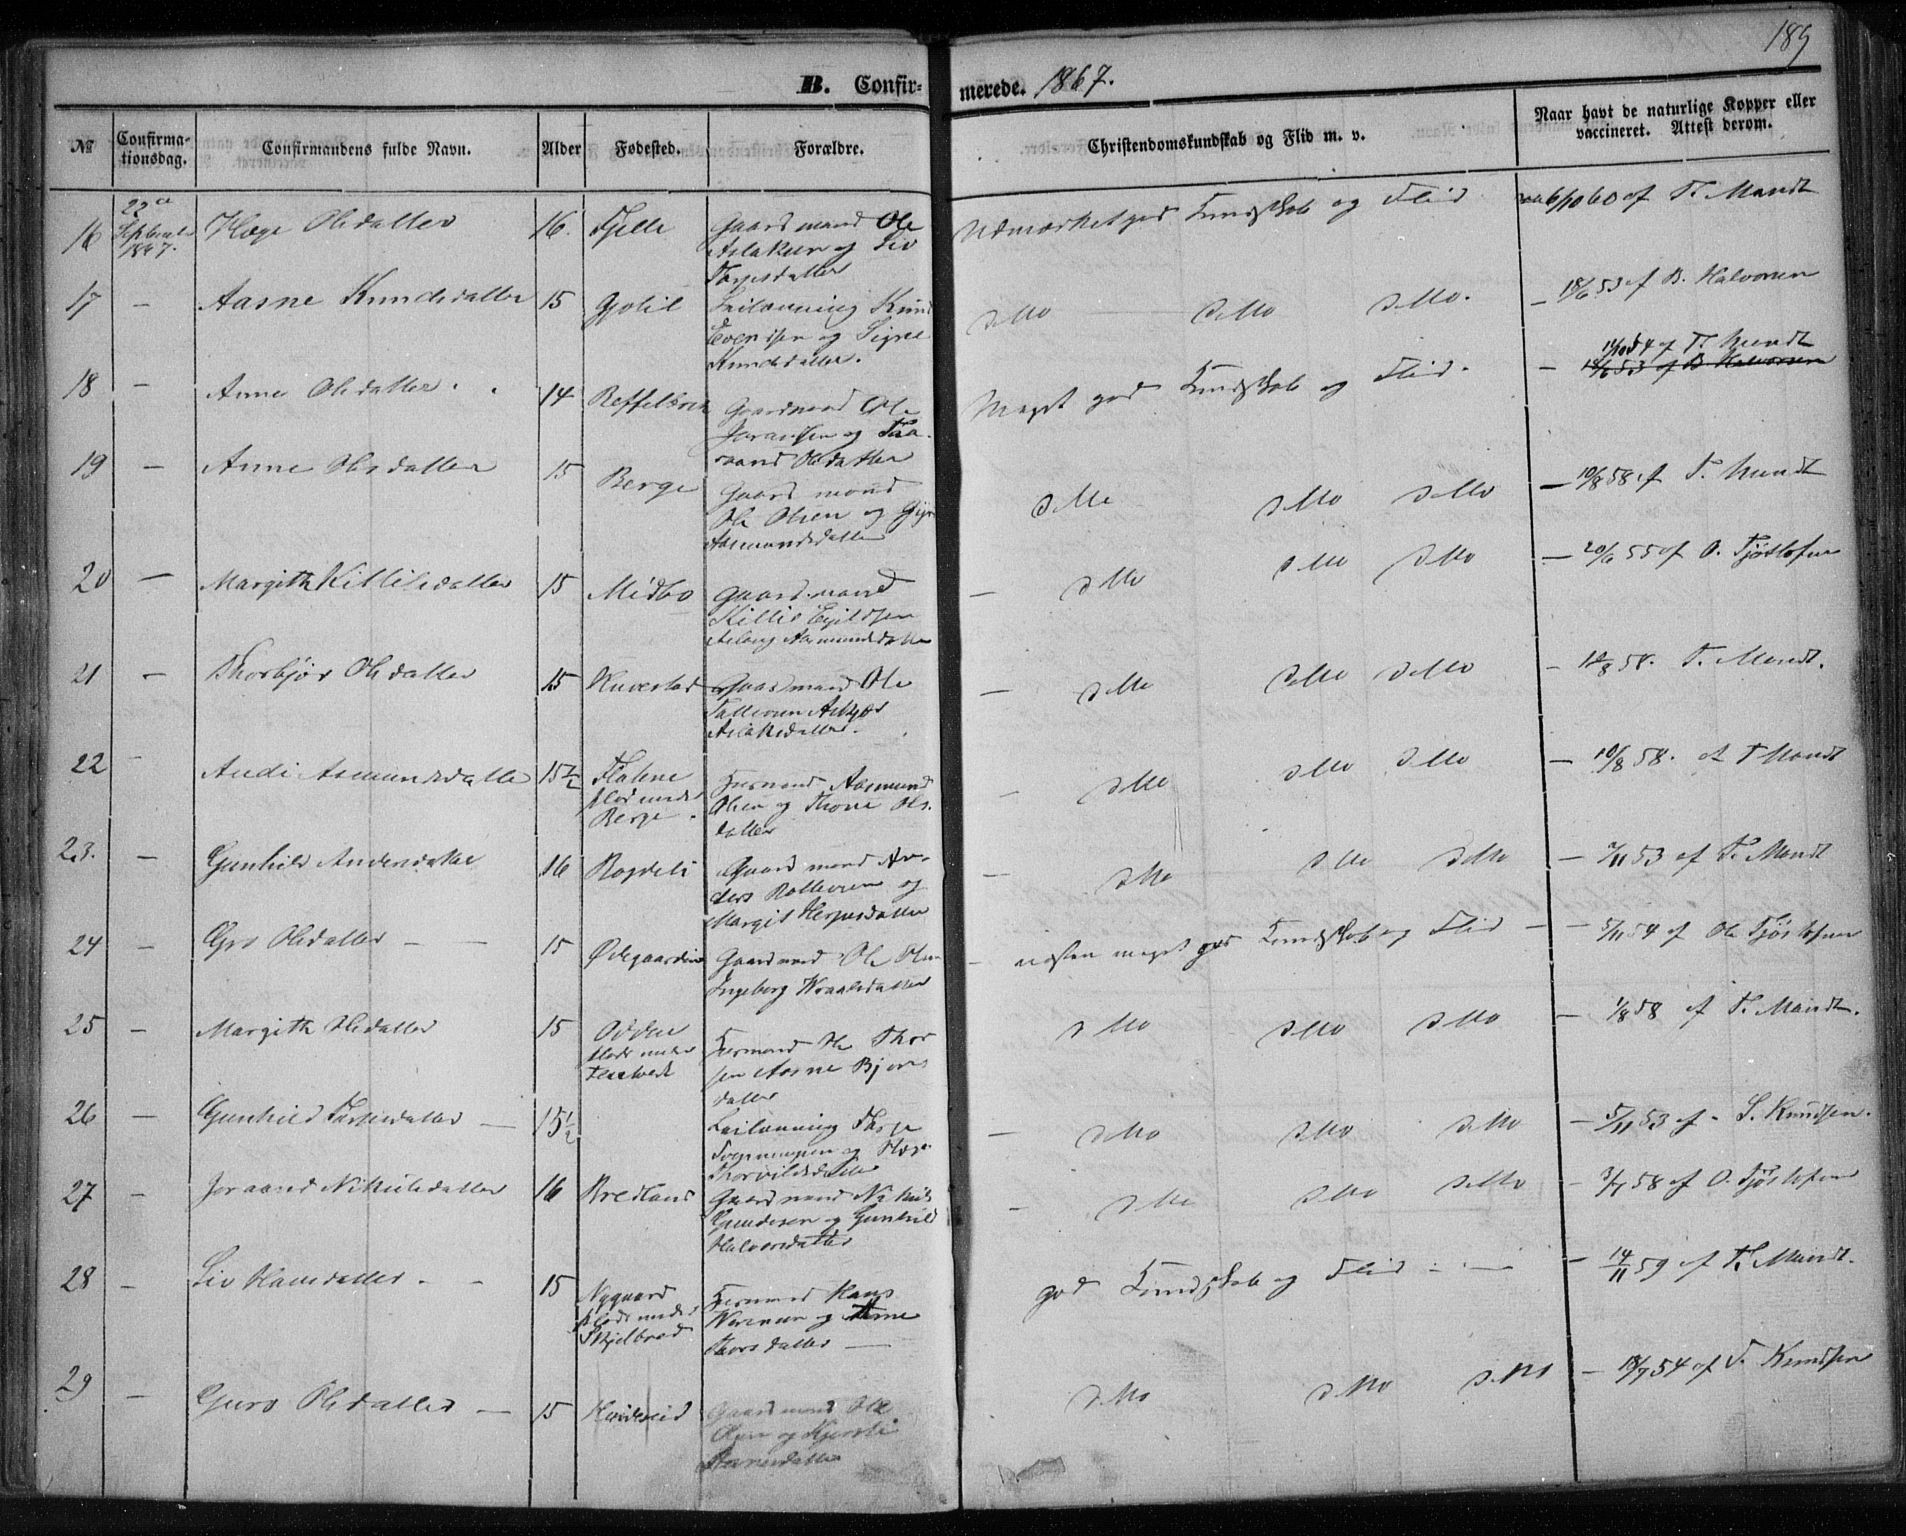 189
B. Confir-
merede. 1867.
№
Confirma-
tionsdag.
Confirmandens fulde Navn.
Alder
Fødested.
Forældre.
Christendomskundskab og Flid m. v.
Naar havt de naturlige Kopper eller
vaccineret. Attest derom.
16
22de
Septembr
1867.
Hæge Olsdatter
16.
Fjelle
Gaardmand Ole
Aslaksen og Liv
Tarjesdatter
Udmærket god Kundskab og Flid
vac 6/10 60 af T. Mandt
17
—
Aasne Knudsdatter
15
Gjelil
Leilænding Knud
Evensen og Signe
Knudsdatter.
ditto ditto ditto.
— 18/6 53 af B. Halvorsen
18
—
Anne Olsdatter.
14
Gaardmand Ole
Joransen og
Olsdatter
Meget god Kundskab og Flid.
11/10 54 af T. Mandt
— 18/6 53 af B Halvorsen
19
—
Anne Olsdatter
15
Berge
Gaardmand
Ole Olsen og
Aasmundsdatter
ditto ditto ditto
— 10/8 58 af T. Mandt
20
—
Margith Kittilsdatter
15
Midbø
Gaardmand
Kittil
Aslaug Aasmundsdatter
— ditto ditto ditto
— 20/6 55 af O. Tjøstolfsen
21
—
Thorbjør Olsdatter
15
Gaardmand Ole
Tallevsen
Aslaksdatter.
— ditto ditto ditto
— 10/8 58. T. Mandt.
22
-
Andi Asmundsdatter
15½
Flatene
plads under
Berge.
Husmand Aasmund
Olsen og Thone Ols-
datter
— ditto ditto ditto
— 10/8 58. af T Mandt
23.
—
Gunhild Andersdatter
16
Rogdeli
Gaardmand An-
ders Rollevsen og
Margit Herjusdatter
— ditto ditto ditto
— 7/11 53 af T. Mandt
24
—
Gro Olsdatter —
15
Ødegaarden
Gaardmand Ole Olsen
Ingeborg
— næsten meget god Kundskab og Flid
— 5/11 54 af Ole Tjøstolfsen
25
—
Margith Olsdatter
15
Oddene
plads under
Gusmand Ole Thor
sen Aasne Bjørns
datter
ditto ditto ditto
— 1/8 58 af T. Mandt.
26
—
Gunhild Tarjesdatter —
15½
Leilænding Tarje
Hæge
Thorvildsdatter
— ditto ditto ditto
— 5/11 53 af S. Knudsen.
27
—
Joraand Nikulsdatter
16
Bredland
Gaardmand Nikuls
Gundersen og Gunhild
Halvorsdatter
— ditto ditto ditto
— 3/7 58 af O. Tjøstolfsen
28
—
Liv Hansdatter.
15
Nygaard
plads under
Skjelbred
Husmand Hans
og Anne
Thorsdatter —
god Kundskab og Flid
— 14/11 59 af T. Mandt.
29
—
Guro Olsdatter —
15
Gaardmand Ole
Olsen og Kjersti
ditto ditto ditto
— 18/7 54 af T. Knudsen